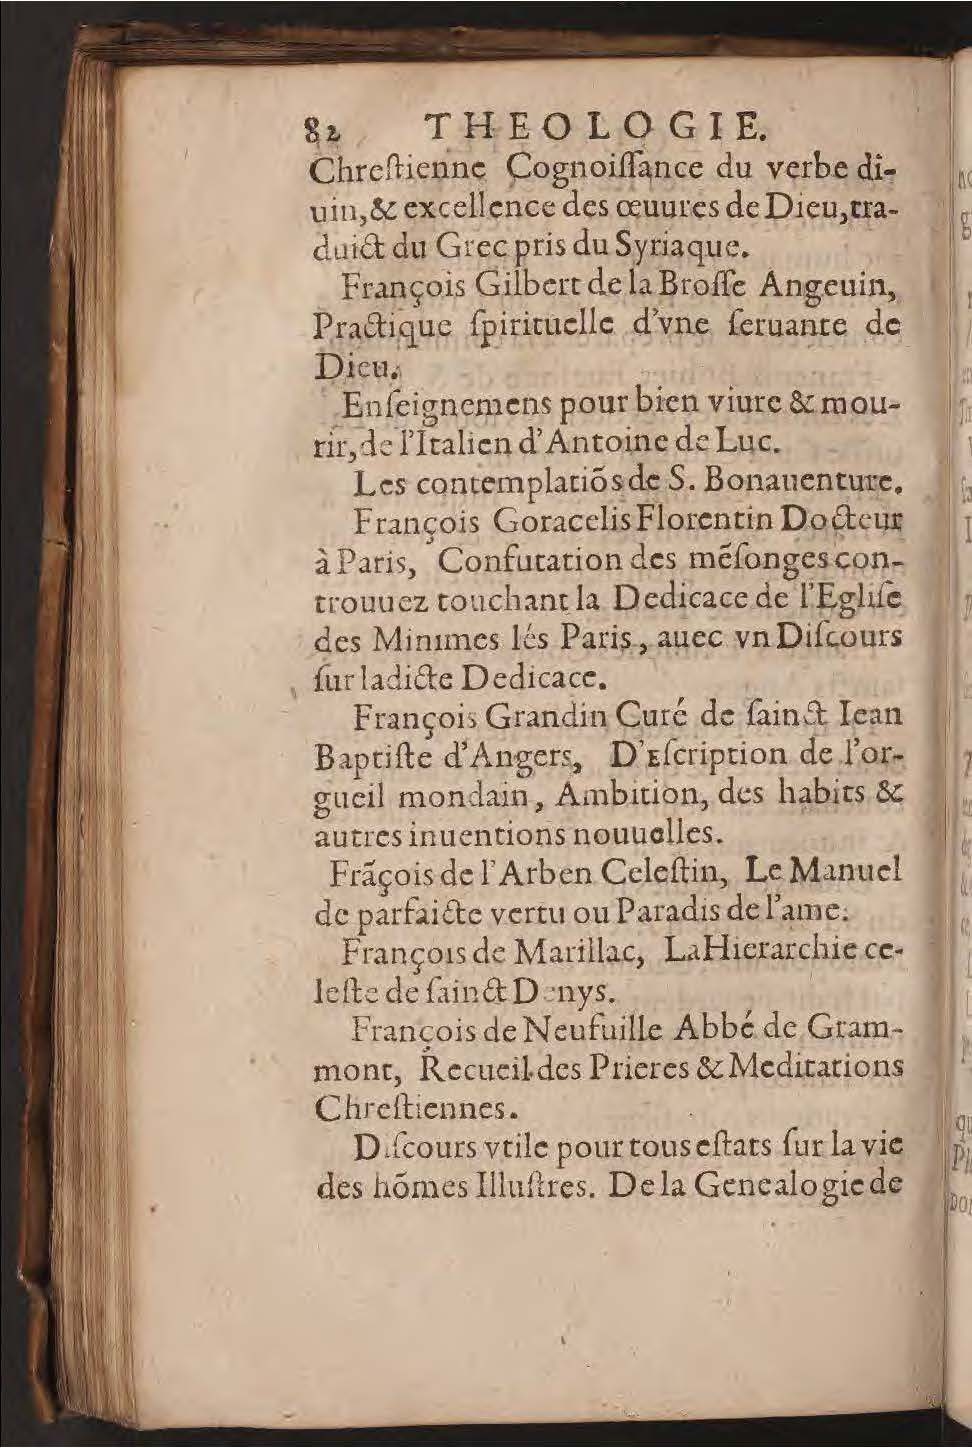 82 THEOLOGIE.
Chreſtienne Cognoiſſance du verbe di-
uin,& excellence des œuures de Dieu,tra-
duict du Grec pris du Syriaque.
François Gilbert de la Broſſe Angeuin,
Practique ſpirituelle d'vne ſeruante de
Dieu.
Enſeignemens pour bien viure & mou-
rir,de l'Italien d'Antoine de Luc.
Les contemplatiõs de S. Bonauenture.
François Goracelis Florentin Docteur
à Paris, Confutation des mẽſonges con-
trouuez touchant la Dedicace de l'Egliſe
des Minimes lés Paris, auec vn Diſcours
ſur ladicte Dedicace.
François Grandin Curé de ſainct Iean
Baptiſte d'Angers, D'Eſcription de l'or-
gueil mondain, Ambition, des habits &
autres inuentions nouuelles.
Frãçois de l'Arben Celeſtin, Le Manuel
de parfaicte vertu ou Paradis de l'ame.
François de Marillac, La Hierarchie ce-
leſte de ſainct Denys.
François de Neufuille Abbé de Gram-
mont, Recueil des Prieres & Meditations
Chreſtiennes.
Diſcours vtile pour tous eſtats ſur la vie
des hõmes Illuſtres. De la Genealogie de